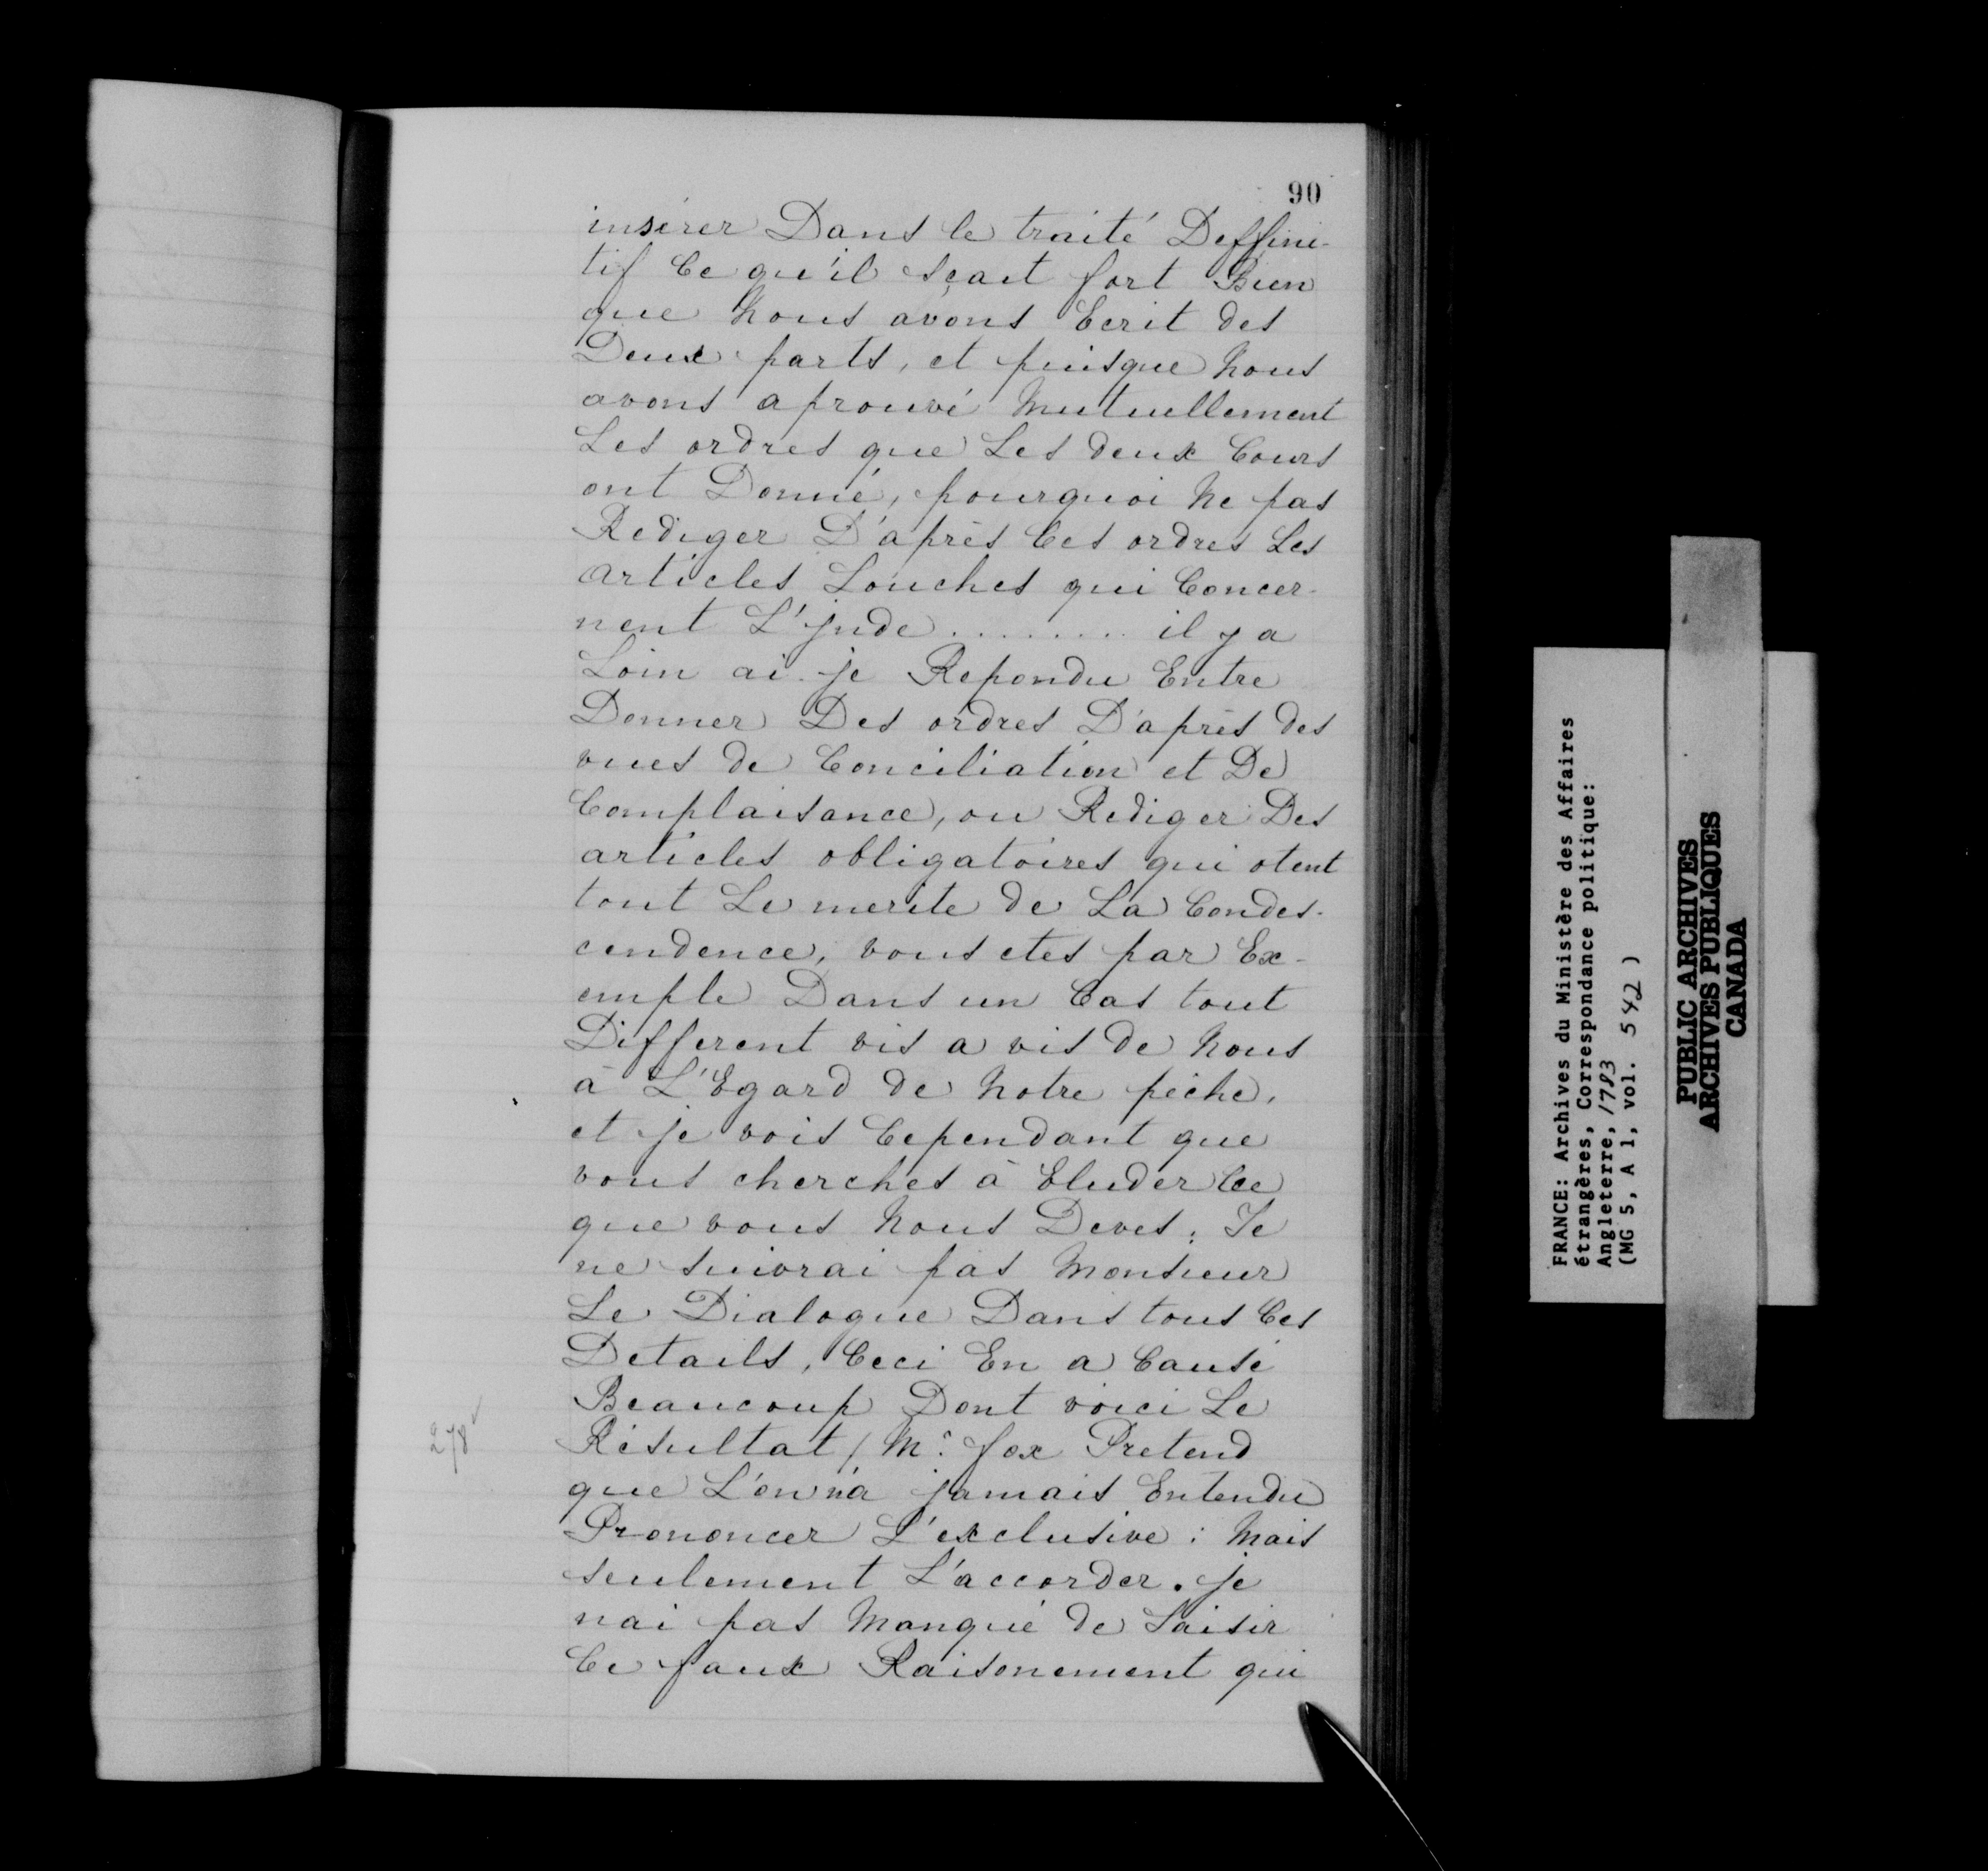 90
insérer Dans le traité Deffini-
tif Ce qu'il sçait fort Bien
que Nous avons Ecrit des
Deux parts, et puisque Nous
avons aprouvé Mutuellement
Les ordres que Les deux Cours
ont Donné, pourquoi Ne pas
Rediger D'après Ces ordres Les
articles Louches qui Concer-
nent L'jnde ........ il y a
Loin ai-je Repondu Entre
Donner Des ordres D'après des
vues de Conciliation et De
Complaisance, ou Rediger Des
articles obligatoires qui otent
tout Le merite de La Condes-
cendence, vous etes par Ex-
emple Dans un Cas tout
Different vis a vis de Nous
à L'Egard de Notre pêche,
et je vois Cependant que
vous cherches à Eluder Ce
que vous Nous Deves: Je
ne suivrai pas Monsieur
Le Dialogue Dans tous Ces
Details, Ceci En a Causé
Beaucoup Dont voici Le
278
Résultat / Mr. fox Pretend
que L'on n'a jamais Entendu
Prononcer L'exclusive: Mais
seulement L'accorder. je
nai pas Manqué de Saisir
Ce faux Raisonement qui
FRANCE: Archives du Ministère des Affaires
étrangères, Correspondance politique:
Angleterre, 1783
(MG 5, A 1, vol. 542 )
PUBLIC ARCHIVES
ARCHIVES PUBLIQUES
CANADA